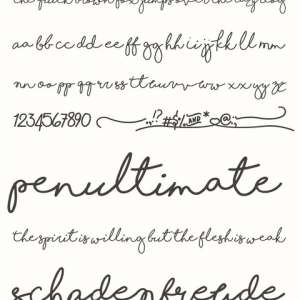 the quick brown fox jumps over the lazy dog
aa bb cc dd ee ff gg hh ii jj kk ll mm
nn oo pp qq rr ss tt uu vv ww xx yy zz
1234567890 .,!? #$% AND * @ : ;
penultimate
the spirit is willing but the flesh is weak
schadenfreude